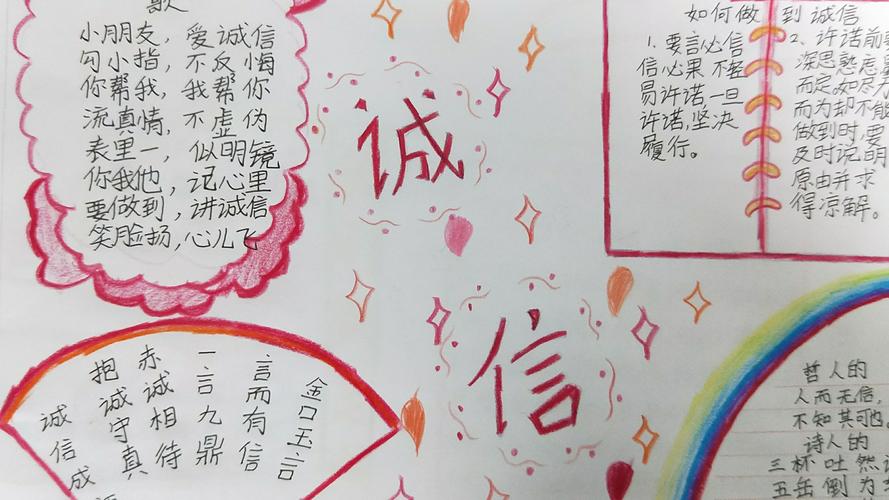 歌
小朋友，爱诚信
勾小指，不反悔
你帮我，我帮你
流真情，不虚伪
表里一，似明镜
你我他，记心里
要做到，讲诚信
笑脸扬，心儿飞
诚
信
如何做到诚信
1、要言必信
信必果 不轻
易许诺,一旦
许诺,坚决
履行。
2、许诺前要
深思熟虑量
而定,如尽力
而为却不能
做到时,要
及时说明
原由并求
得凉解。
金口玉言
言而有信
一言九鼎
赤诚相待
抱诚守真
诚信成
哲人的
人而无信，
不知其可也。
诗人的
三杯吐然
五岳倒为